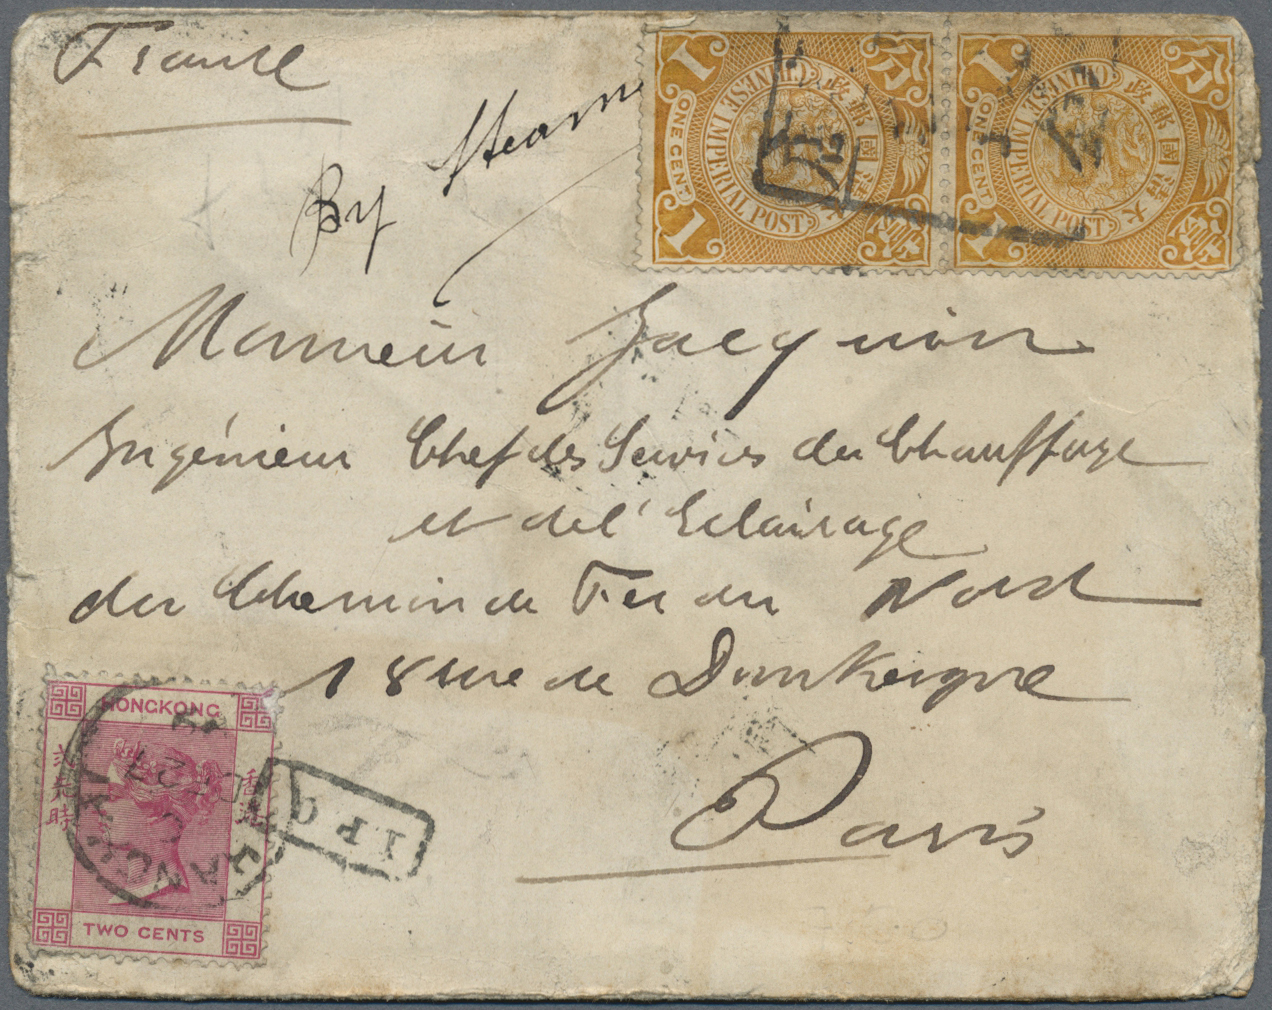 France
By Steamer
Monsieur Jacquin
Ingénieur Chef des Services du Chauffage
et de l'Eclairage
du Chemin de Fer du Nord
18 rue de Dunkerque
Paris
1 分 1 分
ONE CENT ONE CENT
CHINESE IMPERIAL POST CHINESE IMPERIAL POST
大清國郵政 大清國郵政
1 1
HONGKONG
香港
TWO CENTS
I.P.O.